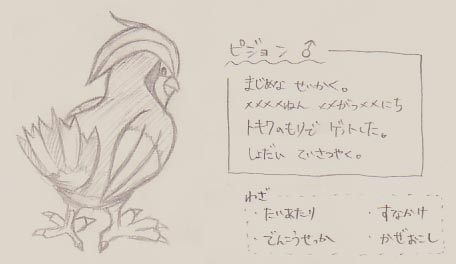 ピジョン ♂
まじめな せいかく。
××××ねん ××がつ××にち
トキワのもりで ゲットした。
しょだい ていさつやく。
わざ
・たいあたり ・すなかけ
・でんこうせっか ・かぜおこし